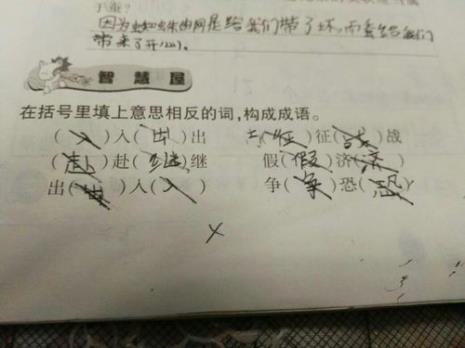 于谁?
因为蜘蛛的网是给我们带了坏,而
带来了开心。
智慧屋
在括号里填上意思相反的词,构成成语。
(入)入(出)出 (征)征(战)战
(赴)赴(继)继 假(假)济(济)
出(出)入(入) 争(争)恐(恐)